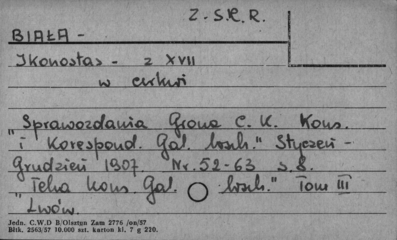 Z.S.R.R.
BIAŁA -
Ikonostas - z XVII
w cerkwi
"Sprawozdania Grona C. K. Kons.
i Korespond. Gal. wsch." Styczeń -
Grudzień 1907 Nr. 52-63 s. 8.
"Teka Kons. Gal. wsch." Tom III
Lwów.
Jedn. C.W.D B/Olsztyn Zam 2776 /on/57
Błtk. 2563/57 10.000 szt. karton kl. 7 g 220.